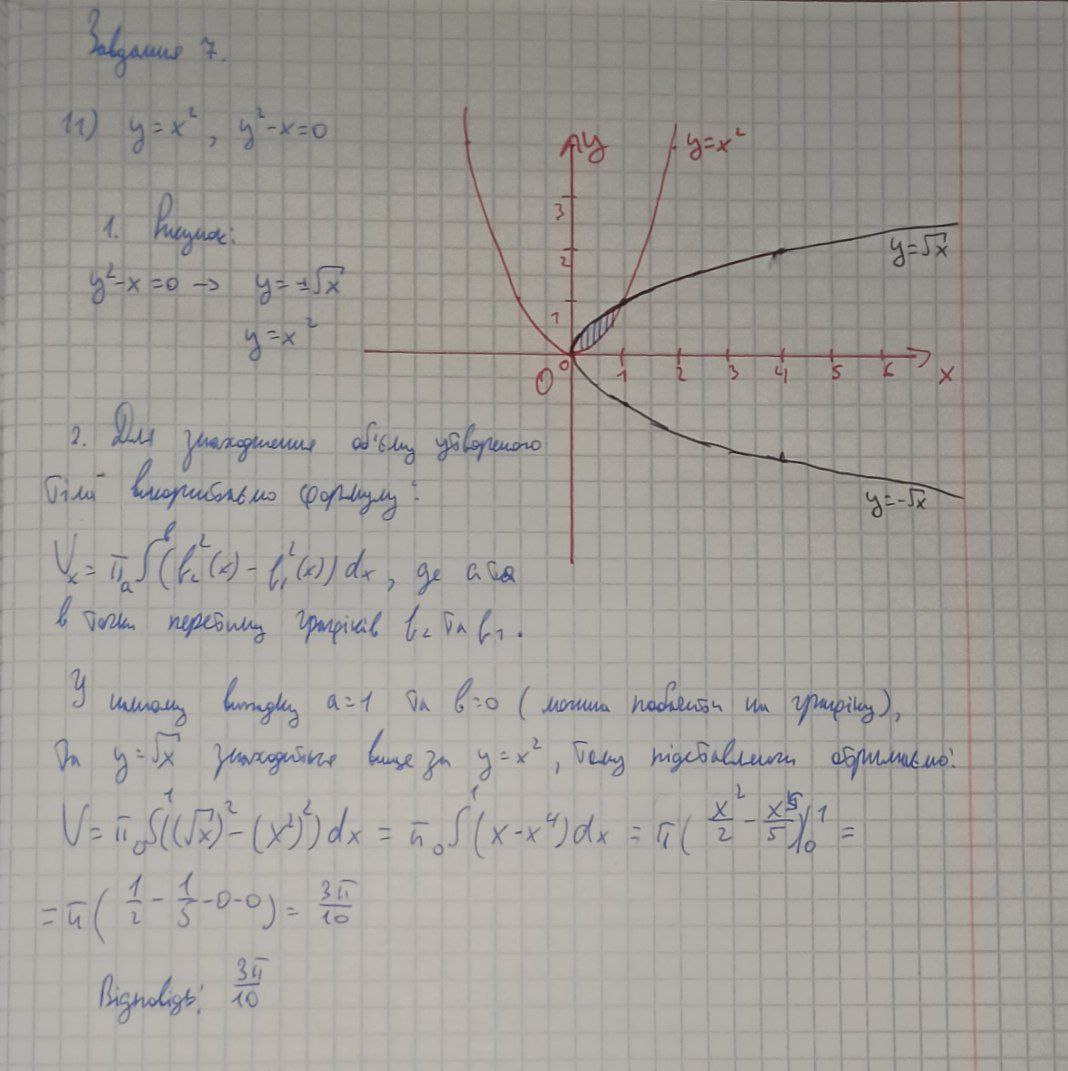 Завдання 7.
11) y = x², y² - x = 0
1. Рисунок:
y² - x = 0 -> y = ±√x
y = x²
y
y = x²
3
2
1
y = √x
0
O
1 2 3 4 5 6
x
y = -√x
2. Для знаходження об'єму утвореного
тіла використаємо формулу:
Vₓ = π ₐ∫ᵇ (f₂²(x) - f₁²(x)) dx, де a та
b точки перетину графіків f₂ та f₁.
У нашому випадку a = 1 та b = 0 (можна побачити на графіку),
та y = √x знаходиться вище за y = x², тому підставляючи отримаємо:
V = π ₀∫¹ ((√x)² - (x²)²) dx = π ₀∫¹ (x - x⁴) dx = π (x²/2 - x⁵/5)|₀¹ =
= π (1/2 - 1/5 - 0 - 0) = 3π/10
Відповідь: 3π/10